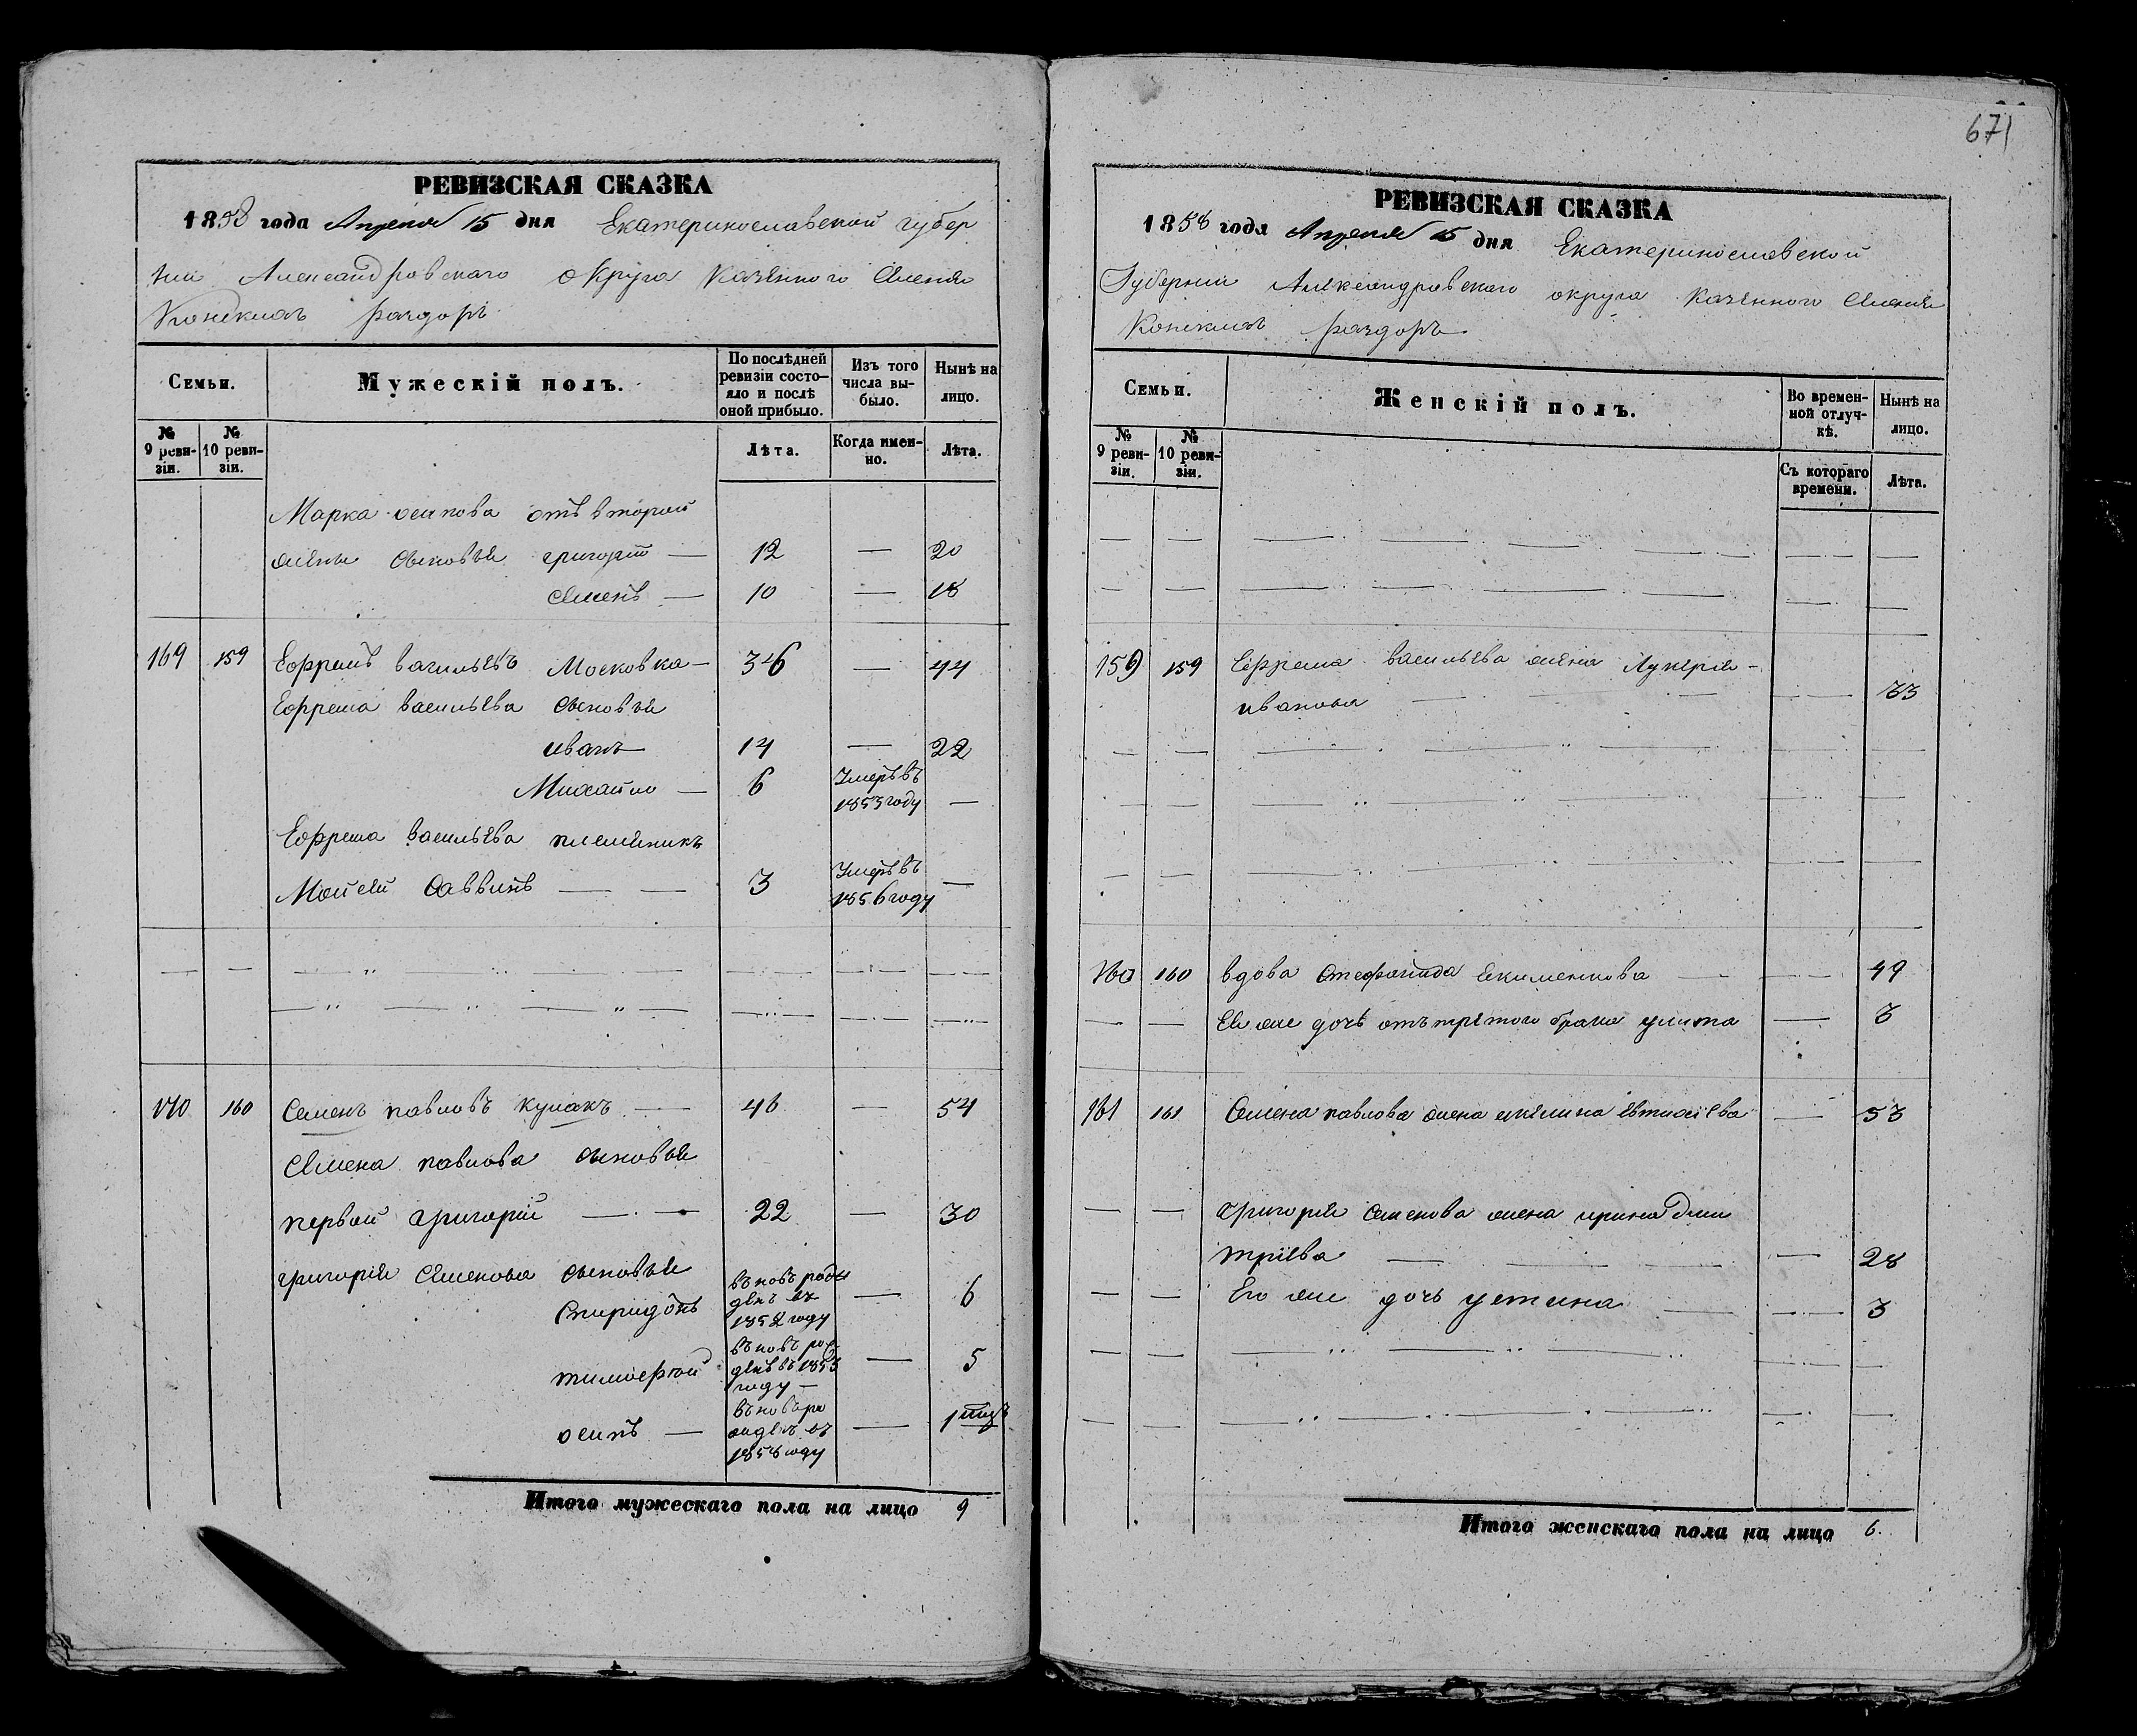 671
РЕВИЗСКАЯ СКАЗКА
1858 года Апреля 15 дня Екатеринославской губер
нии Александровскаго округа Казенного Селенія
Конскихъ раздоръ
Семьи.
Мужескій полъ.
По послѣдней ревизіи состо-яло и послѣ оной прибыло.
Изъ того числа вы-было.
Нынѣ на лицо.
№ 9 реви-зіи.
№ 10 реви-зіи.
Лѣта.
Когда имен-но.
Лѣта.
Марка осипова отъ второй
жены сыновья григорій — 12 — 20
Семенъ — 10 — 18
169 159 Ефремъ васильевъ Московка — 36 — 44
Ефрема васильева сыновья
иванъ — 14 — 22
Михайло — 6 Умеръ въ 1853 году —
Ефрема васильева племяникъ
Моисей Саввинъ — — 3 Умеръ въ 1856 году —
170 160 Семенъ павловъ кулакъ — 46 — 54
Семена павлова сыновья
первой григорій — — 22 — 30
григорія Семенова сыновья
Спиридонъ въновь рож денъ въ 1852 году — 6
тимофей въновь рож денъ въ 1853 году — — 5
осипъ — въновь ро жденъ въ 1858 году — 1
Итого мужескаго пола на лицо 9
РЕВИЗСКАЯ СКАЗКА
1858 года Апреля 15 дня Екатеринославской
Губерніи Александровскаго округа казенного Селенія
Конскихъ раздоръ
Семьи.
Женскій полъ.
Во времен-ной отлуч-кѣ.
Нынѣ на лицо.
№ 9 реви-зіи.
№ 10 реви-зіи.
Съ котораго времени.
Лѣта.
159 159 Ефрема васильева жена Лукерія —
иванова — — 33
160 160 вдова Стефанида Екименкова — — 49
Ея же дочь отъ третого брака улита — 3
161 161 Семена павлова жена — 53
григорія Семенова жена ирина дми
тріева — — 28
Его же дочь устина — — 3
Итого женскаго пола на лицо 6.